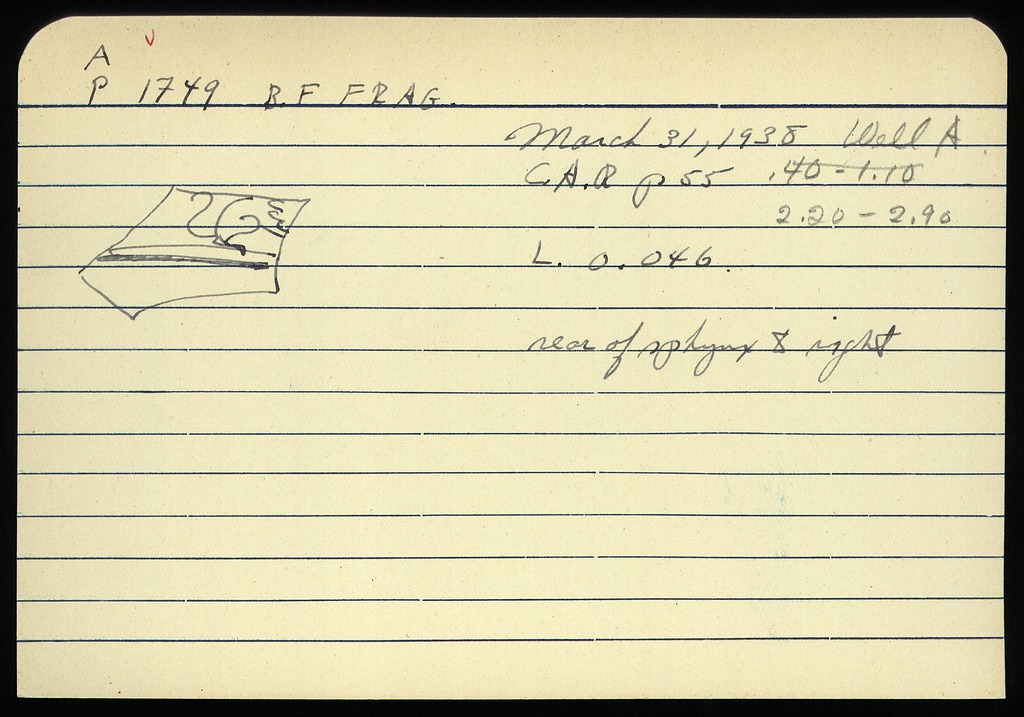 A
P 1749 B.F FRAG.
March 31, 1938 Well A
C.A.R p 55 .40 - 1.10
2.20 - 2.90
L. 0.046.
rear of sphynx to right